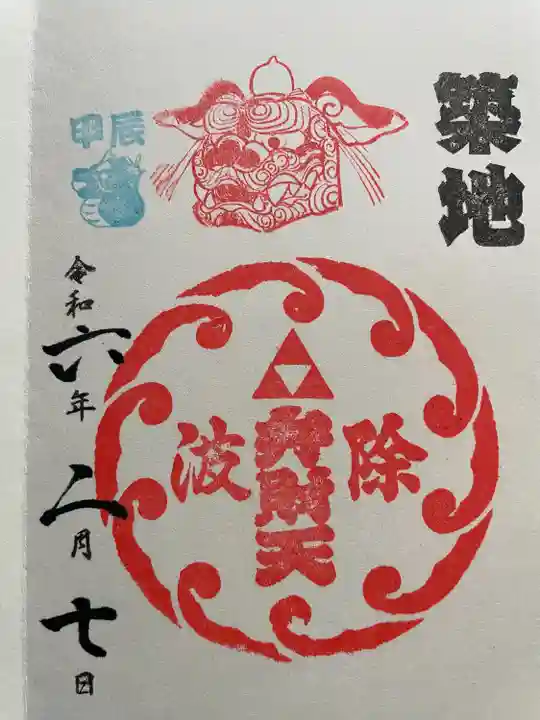 築地
除波
弁財天
甲辰
令和六年二月七日